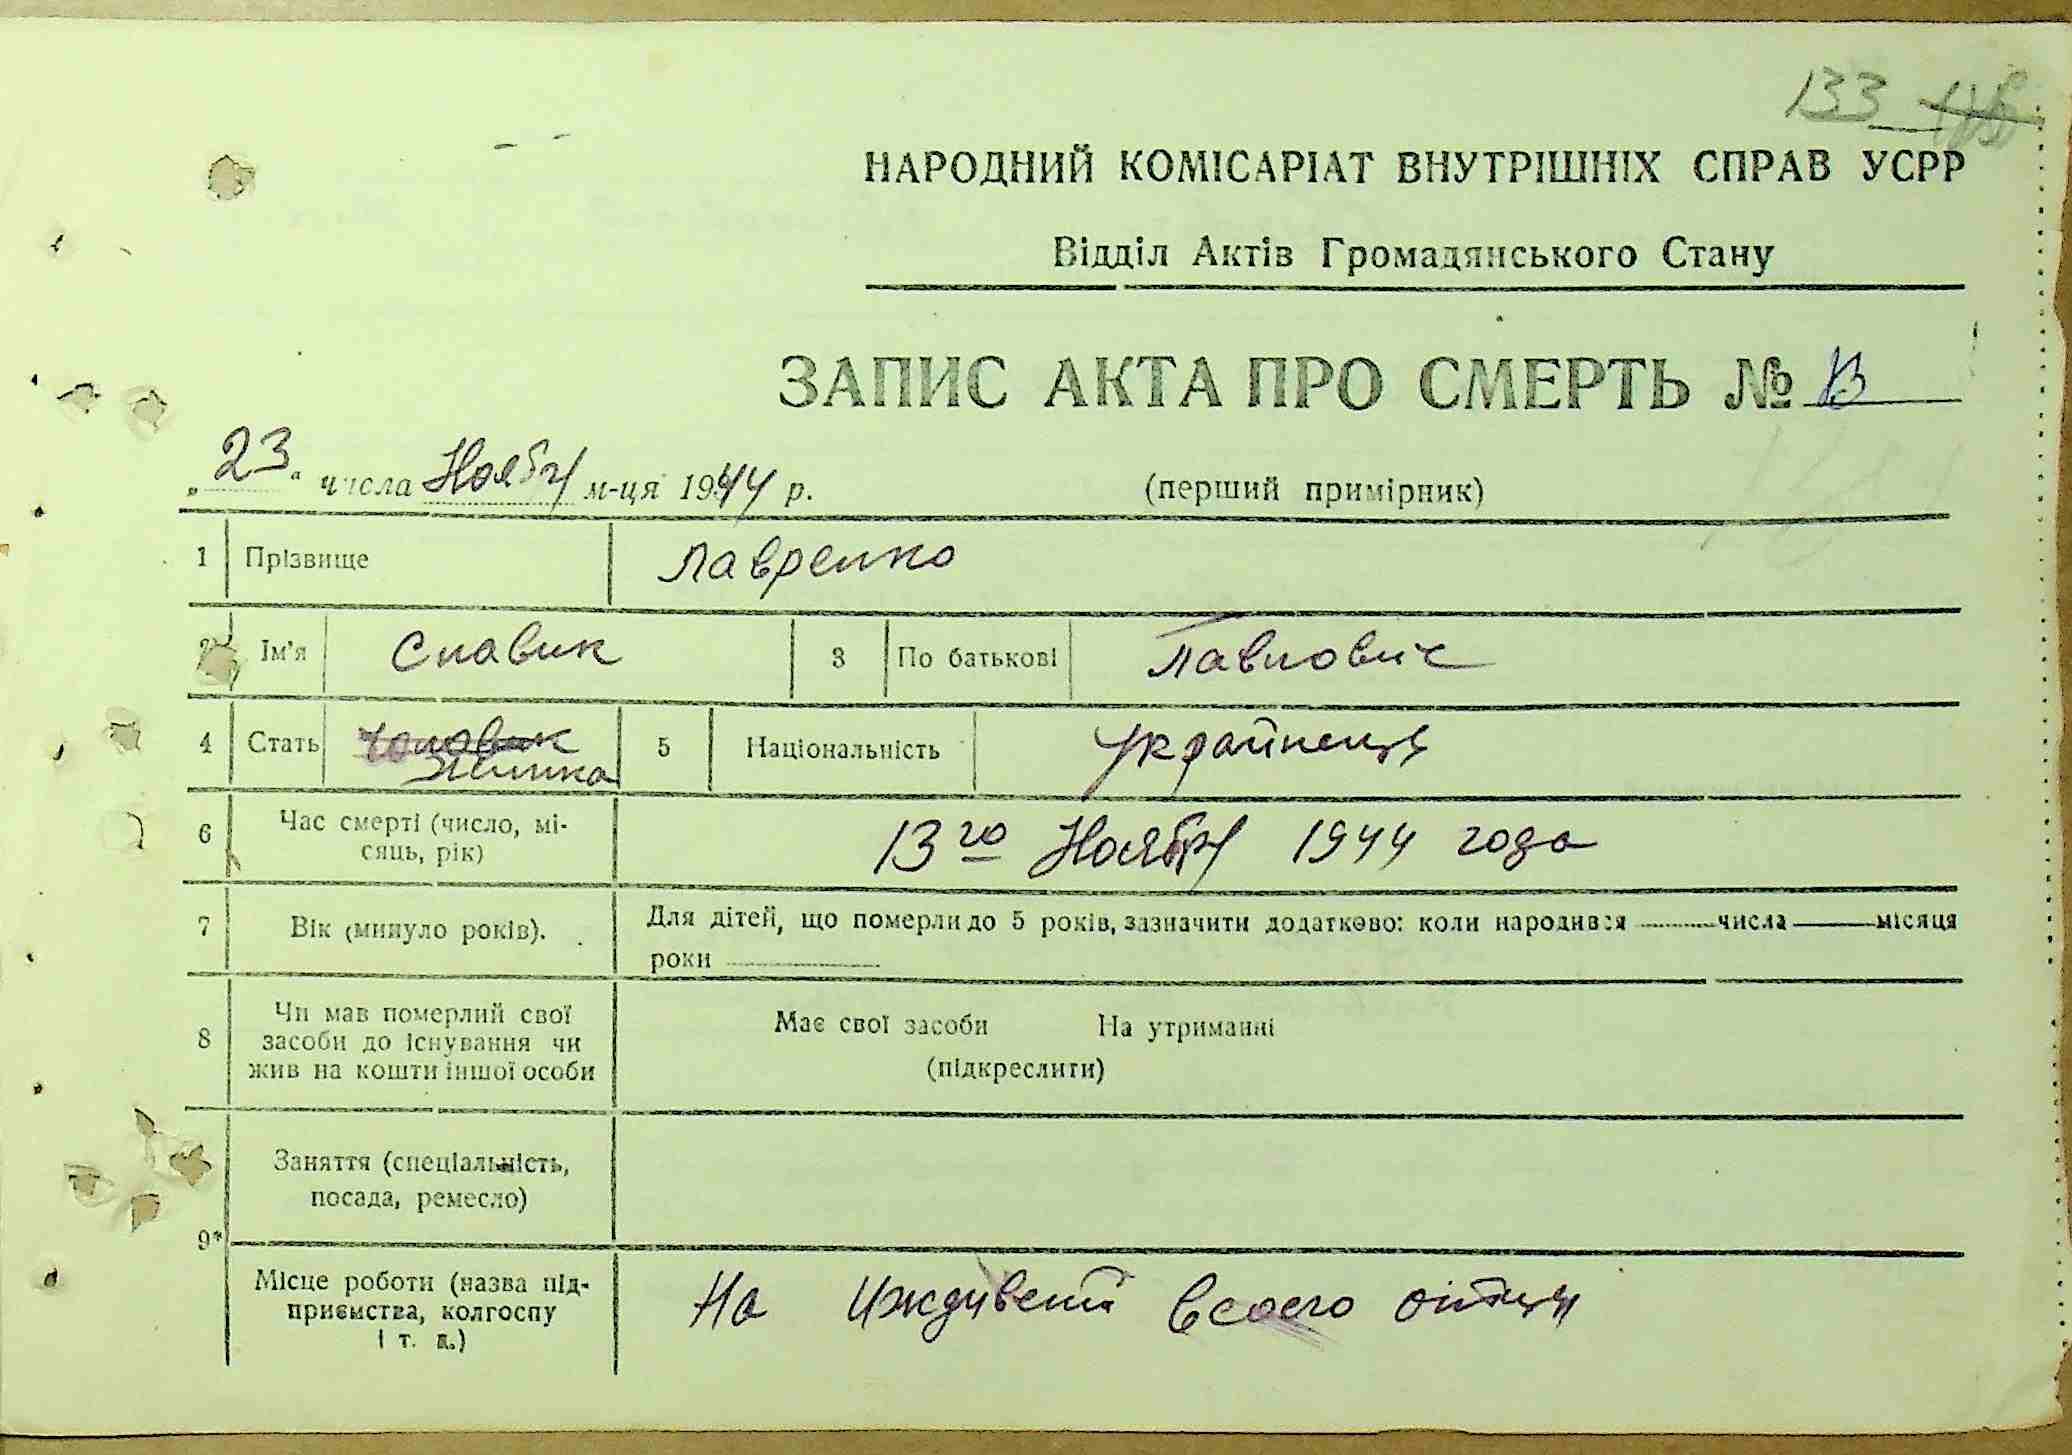 133
НАРОДНИЙ КОМІСАРІАТ ВНУТРІШНІХ СПРАВ УСРР
Відділ Актів Громадянського Стану
ЗАПИС АКТА ПРО СМЕРТЬ №
„23“ числа Ноября м-ця 1944 р. (перший примірник)
1 Прізвище Лавренко
2 Ім'я Славик 3 По батькові Павлович
4 Стать чоловик 5 Національність Украйнець
6 Час смерті (число, мі-
сяць, рік)
13го Ноября 1944 года
7 Вік (минуло років).
Для дітей, що померли до 5 років, зазначити додатково: коли народився числа місяця
роки
8 Чи мав померлий свої
засоби до існування чи
жив на кошти іншої особи
Має свої засоби На утриманні
(підкреслити)
9* Заняття (спеціальність,
посада, ремесло)
Місце роботи (назва під-
приємства, колгоспу
і т. д.)
На иждивении своего